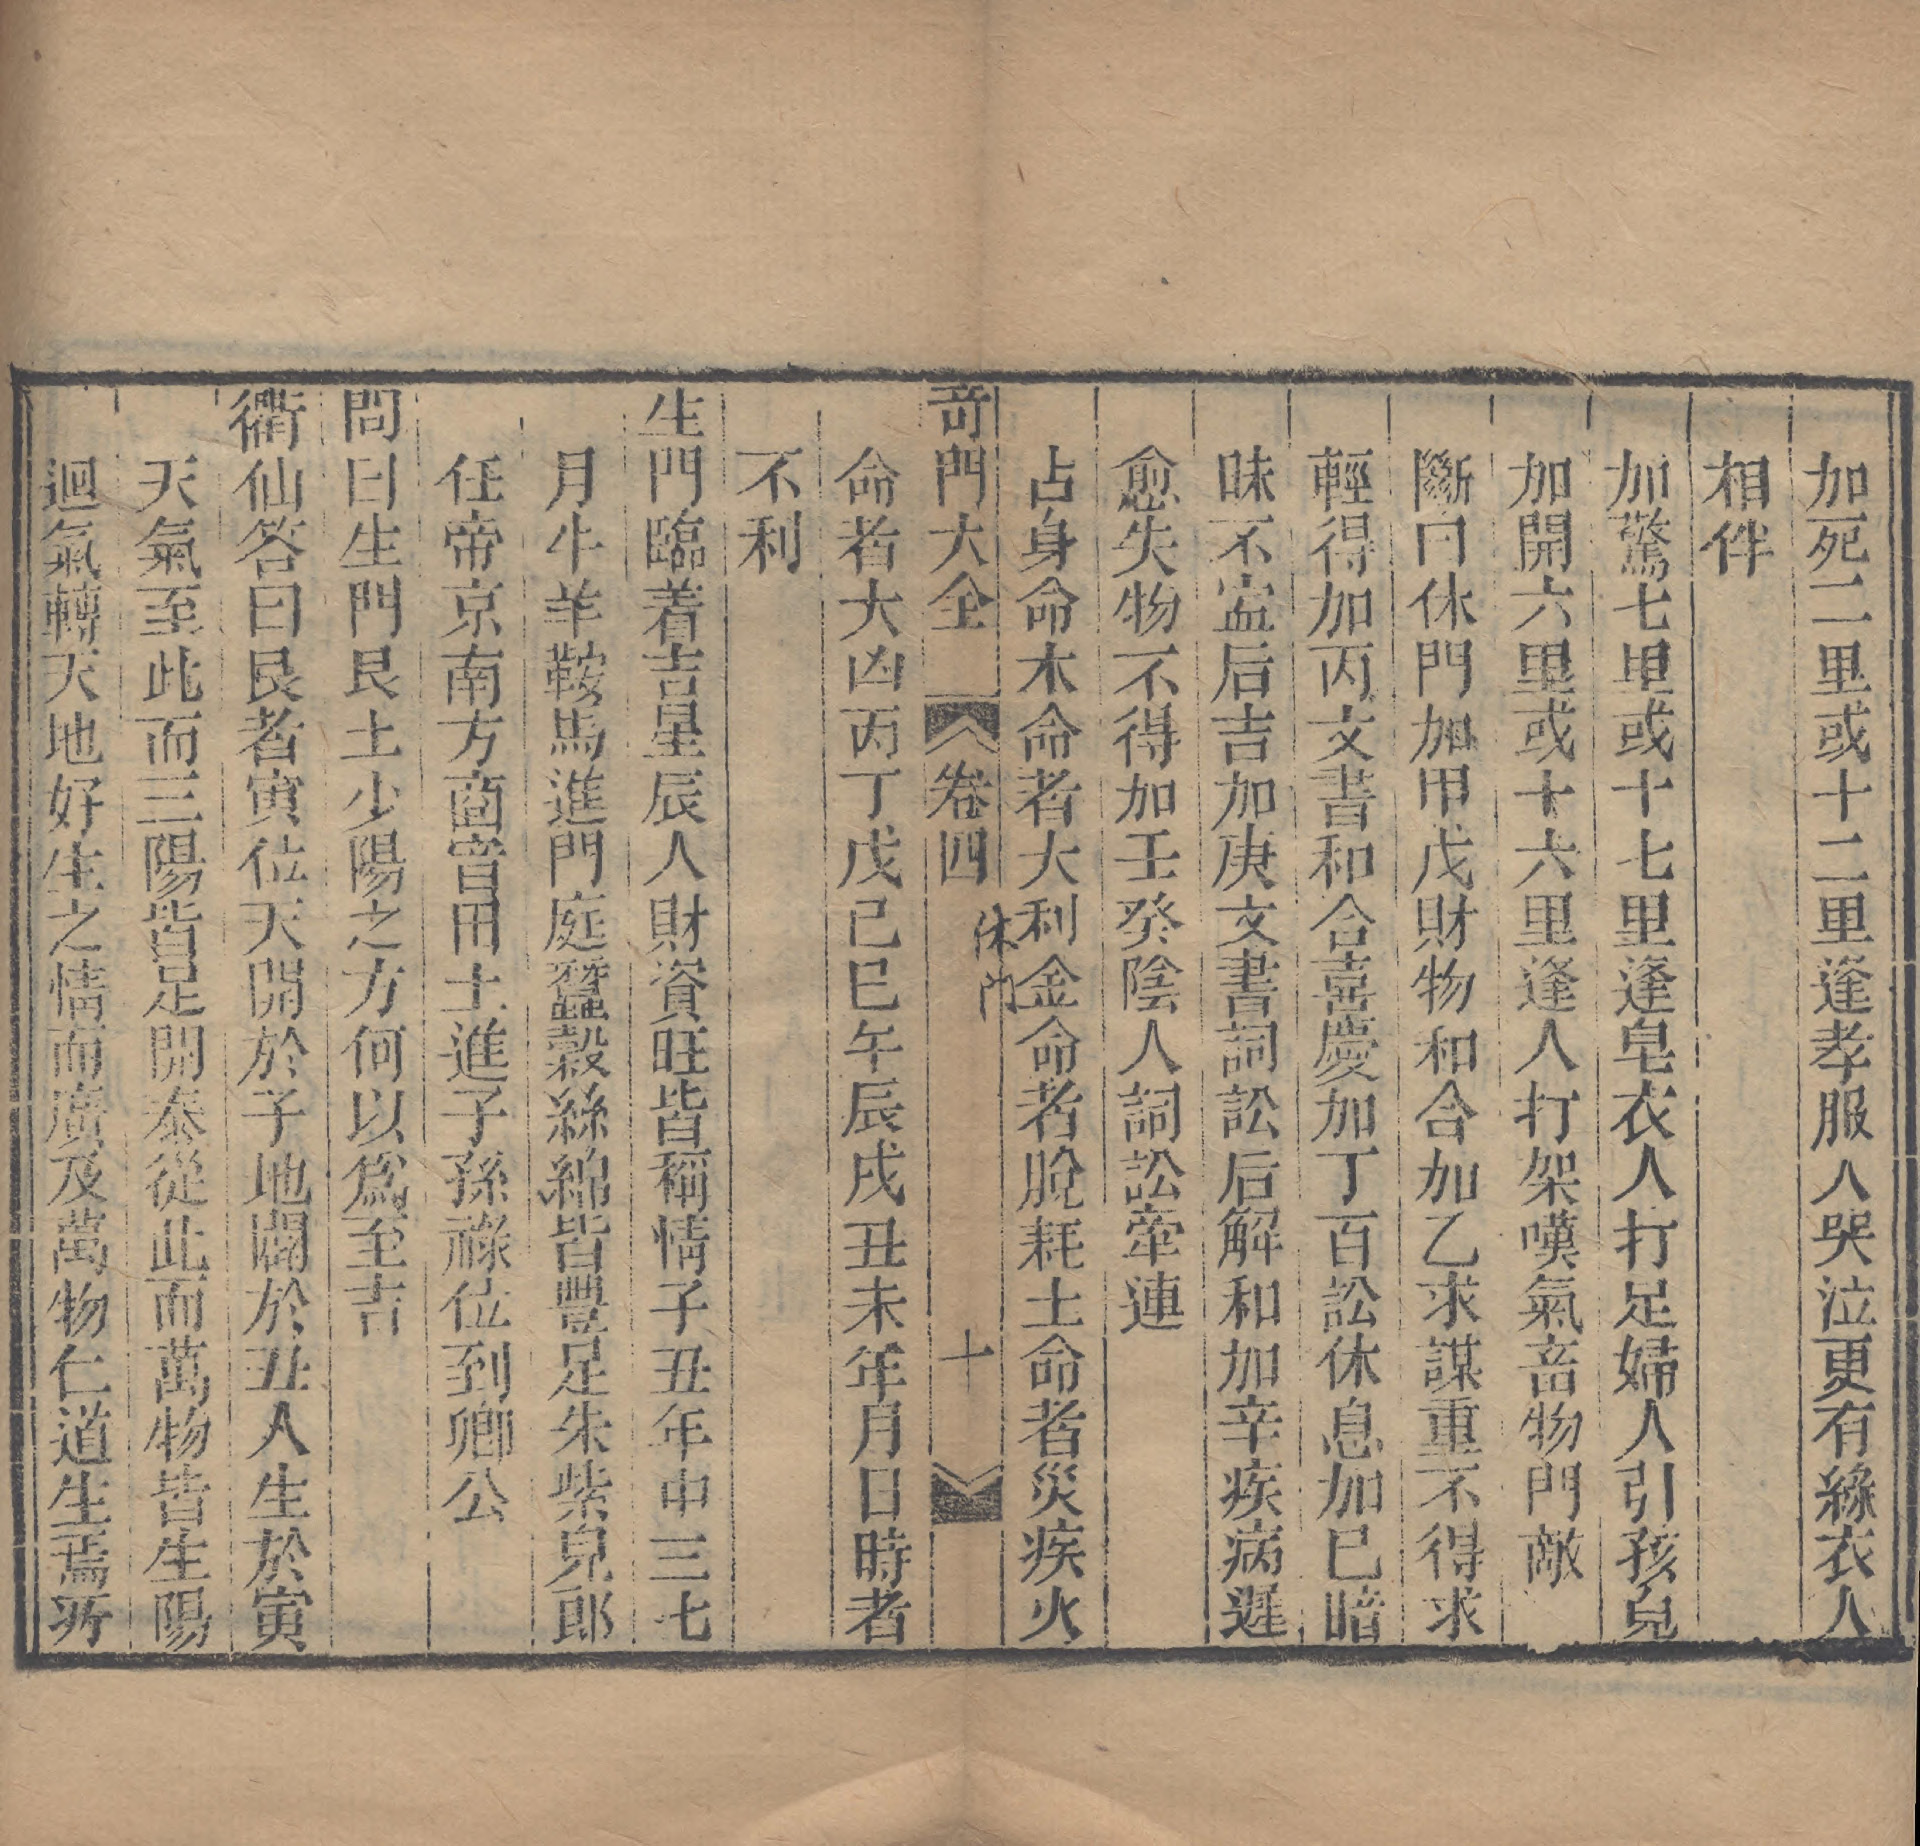 加死二里或十二里逢孝服人哭泣更有綠衣人
相伴
加驚七里或十七里逢皂衣人打足婦人引孩兒
加開六里或十六里逢人打架嘆氣畜物門敵
斷曰休門加甲戊財物和合加乙求謀重不得求
輕得加丙文書和合喜慶加丁百訟休息加巳暗
昧不寍后吉加庚文書詞訟后解和加辛疾病遲
愈失物不得加壬癸陰人詞訟牽連
占身命木命者大利金命者脫耗土命者災疾火
奇門大全 卷四 休門 十
命者大凶丙丁戊己巳午辰戌丑未年月日時者
不利
生門臨着吉星辰人財資旺皆稱情子丑年中三七
月牛羊鞍馬進門庭蠶穀絲綿皆豐足朱紫兒郎
任帝京南方啇音田土進子孫祿位到卿公
問曰生門艮土少陽之方何以爲至吉
衢仙答曰艮者寅位天開於子地闢於丑人生於寅
天氣至此而三陽皆足開泰從此而萬物皆生陽
迴氣轉天地好生之情而廣及萬物仁道生焉所